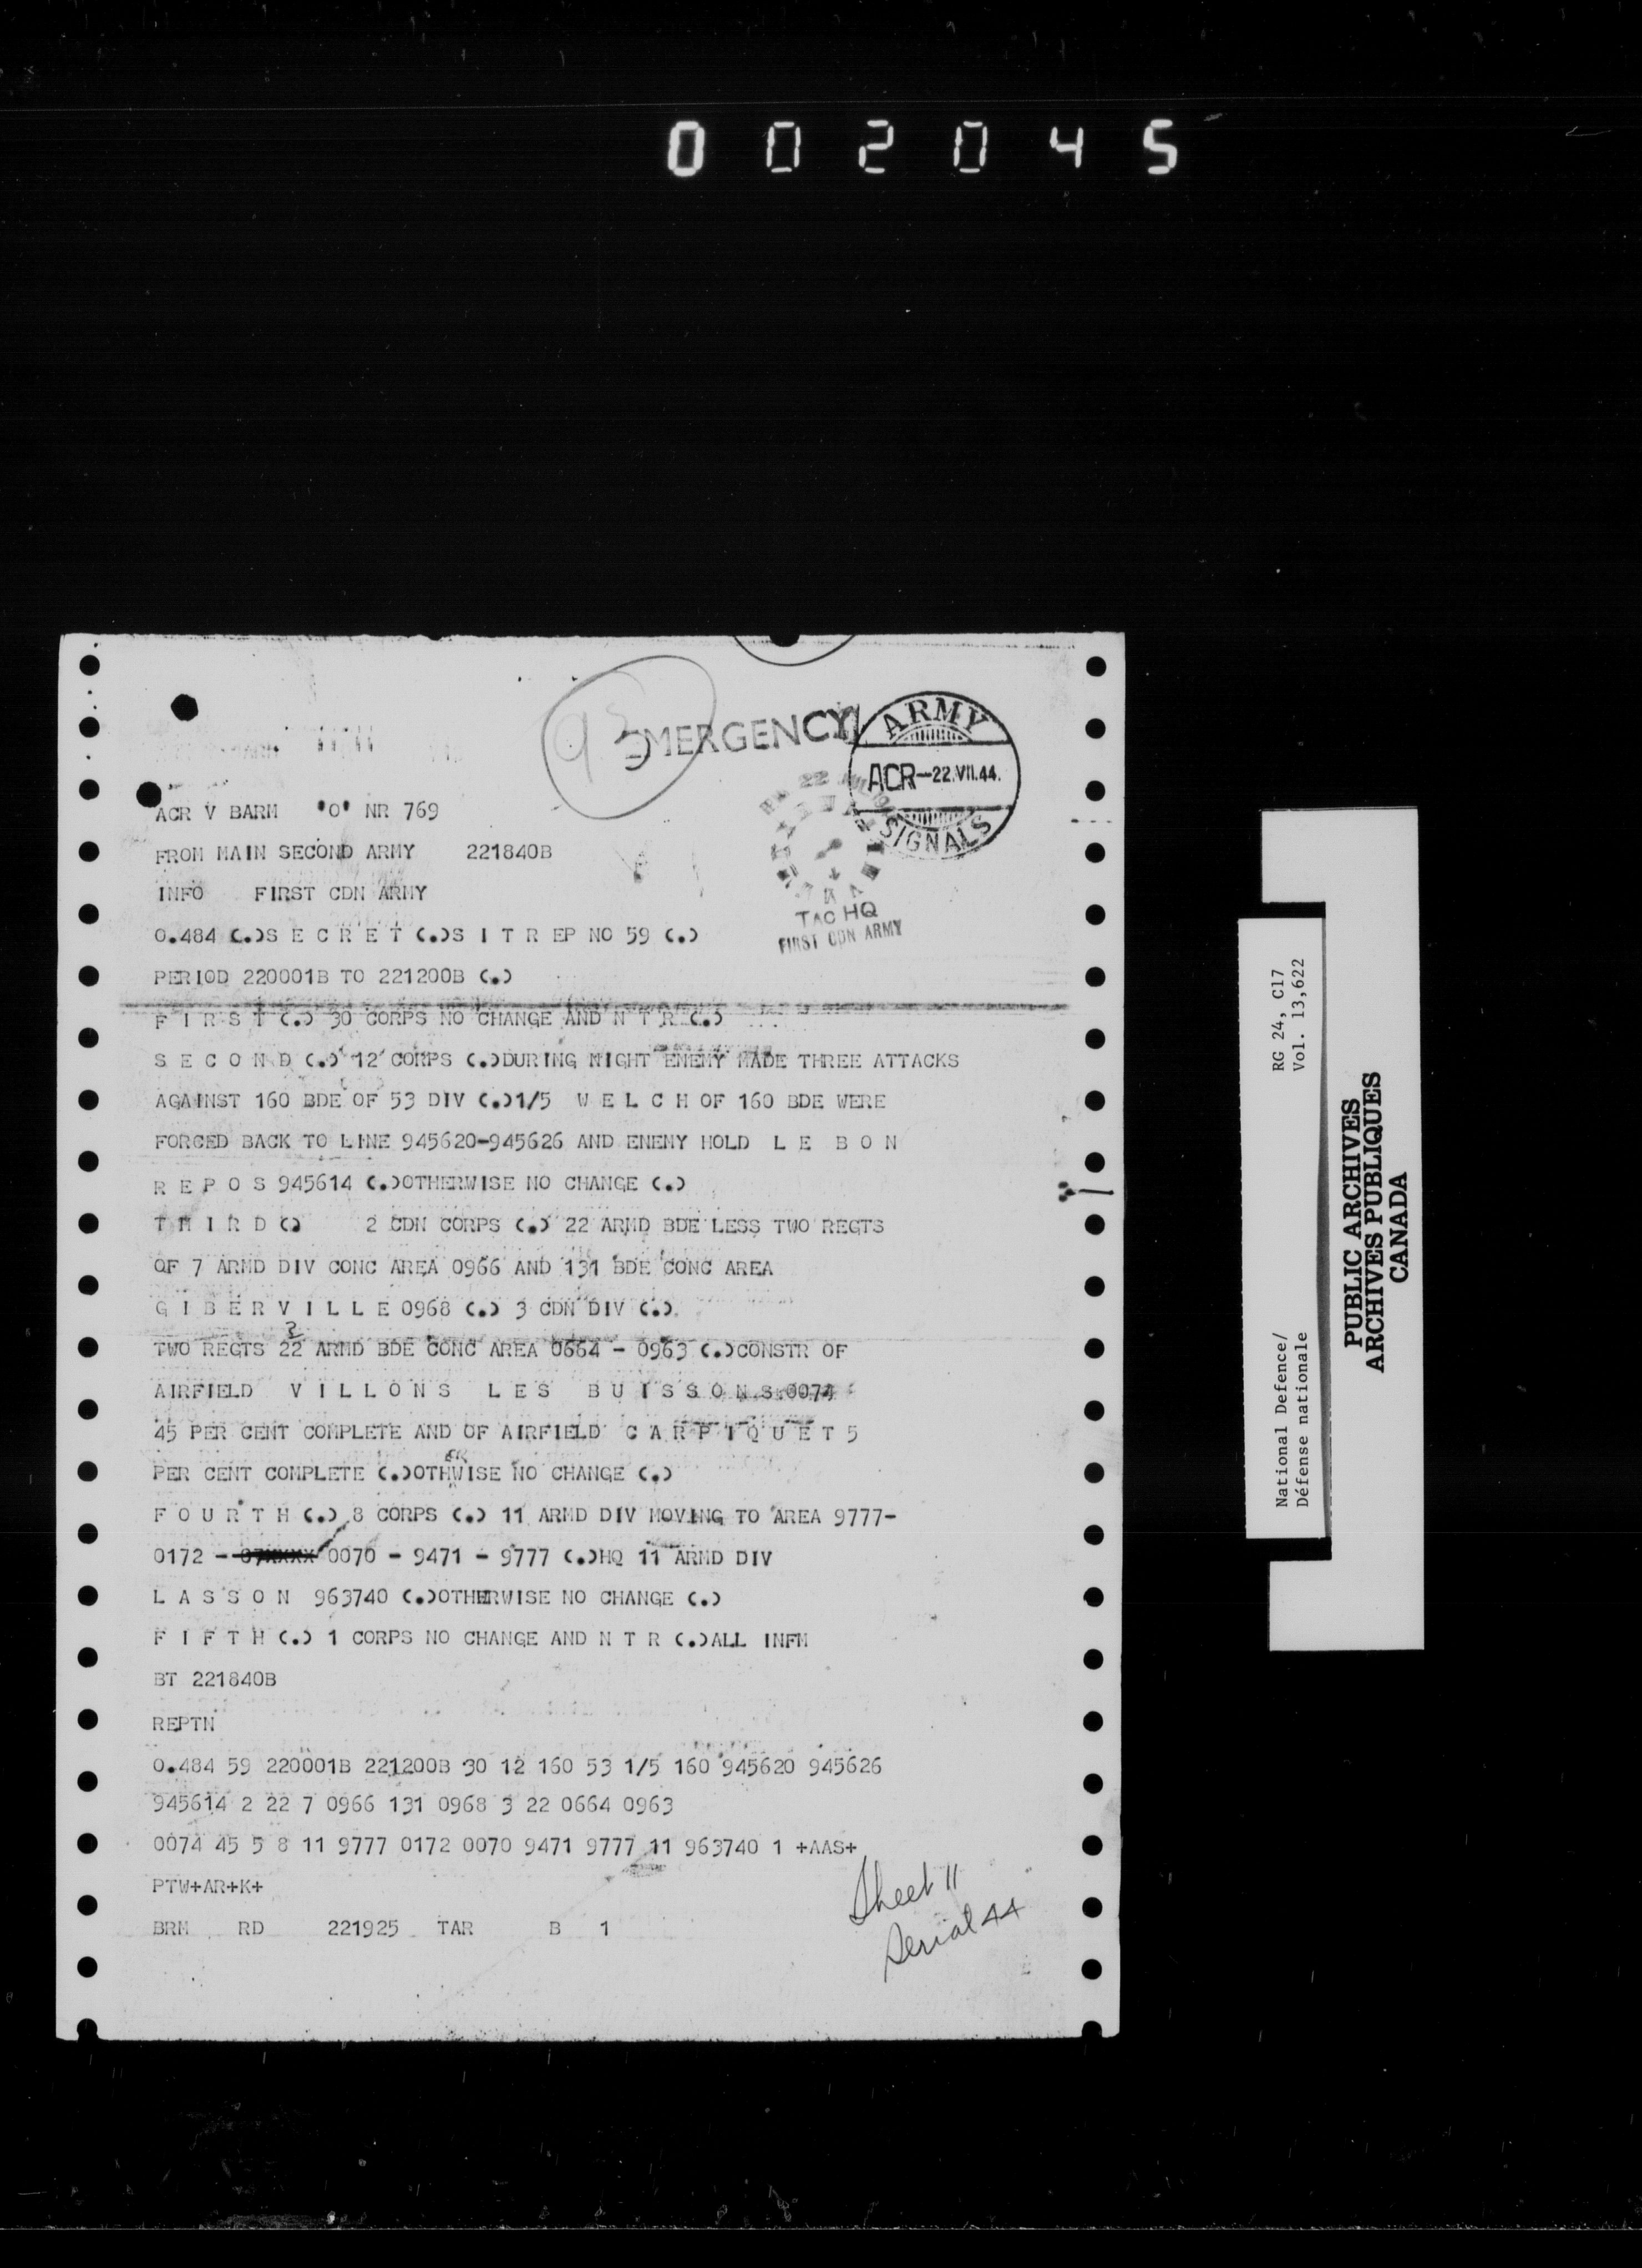 002045
93
EMERGENCY
ARMY
ACR-22.VII.44.
SIGNALS
22
TAC HQ
FIRST CDN ARMY
ACR V BARM 'O' NR 769
FROM MAIN SECOND ARMY 221840B
INFO FIRST CDN ARMY
O.484 (.)S E C R E T (.)S I T R EP NO 59 (.)
PERIOD 220001B TO 221200B (.)
F I R S T (.) 30 CORPS NO CHANGE AND N T R (.)
S E C O N D (.) 12 CORPS (.)DURING NIGHT ENEMY MADE THREE ATTACKS
AGAINST 160 BDE OF 53 DIV (.)1/5 W E L C H OF 160 BDE WERE
FORCED BACK TO LINE 945620-945626 AND ENEMY HOLD L E B O N
R E P O S 945614 (.)OTHERWISE NO CHANGE (.)
T H I R D (.) 2 CDN CORPS (.) 22 ARMD BDE LESS TWO REGTS
OF 7 ARMD DIV CONC AREA 0966 AND 131 BDE CONC AREA
G I B E R V I L L E 0968 (.) 3 CDN DIV (.)
2
TWO REGTS 22 ARMD BDE CONC AREA 0664 - 0963 (.)CONSTR OF
AIRFIELD V I L L O N S L E S B U I S S O N S 0074
45 PER CENT COMPLETE AND OF AIRFIELD C A R P I Q U E T 5
ER
PER CENT COMPLETE (.)OTHWISE NO CHANGE (.)
F O U R T H (.) 8 CORPS (.) 11 ARMD DIV MOVING TO AREA 9777-
0172 - 07XXXX 0070 - 9471 - 9777 (.)HQ 11 ARMD DIV
L A S S O N 963740 (.)OTHERWISE NO CHANGE (.)
F I F T H (.) 1 CORPS NO CHANGE AND N T R (.)ALL INFM
BT 221840B
REPTN
0.484 59 220001B 221200B 30 12 160 53 1/5 160 945620 945626
945614 2 22 7 0966 131 0968 3 22 0664 0963
0074 45 5 8 11 9777 0172 0070 9471 9777 11 963740 1 +AAS+
PTW+AR+K+
BRM RD 221925 TAR B 1
Sheet 11
Serial 44
RG 24, C17
Vol. 13,622
National Defence/
Défense nationale
PUBLIC ARCHIVES
ARCHIVES PUBLIQUES
CANADA